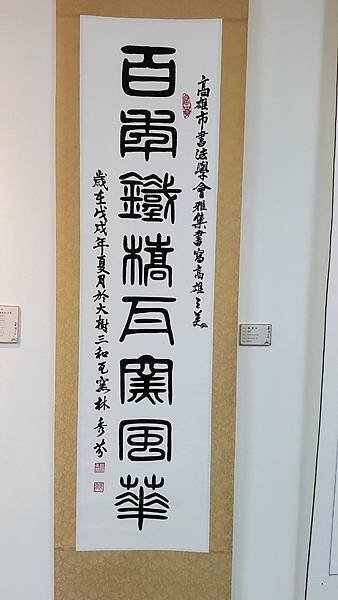 高雄市書法學會雅集書寫高雄之美
百年鐵橋瓦窯風華
歲在戊戌年夏月於大樹三和瓦窯林秀芬